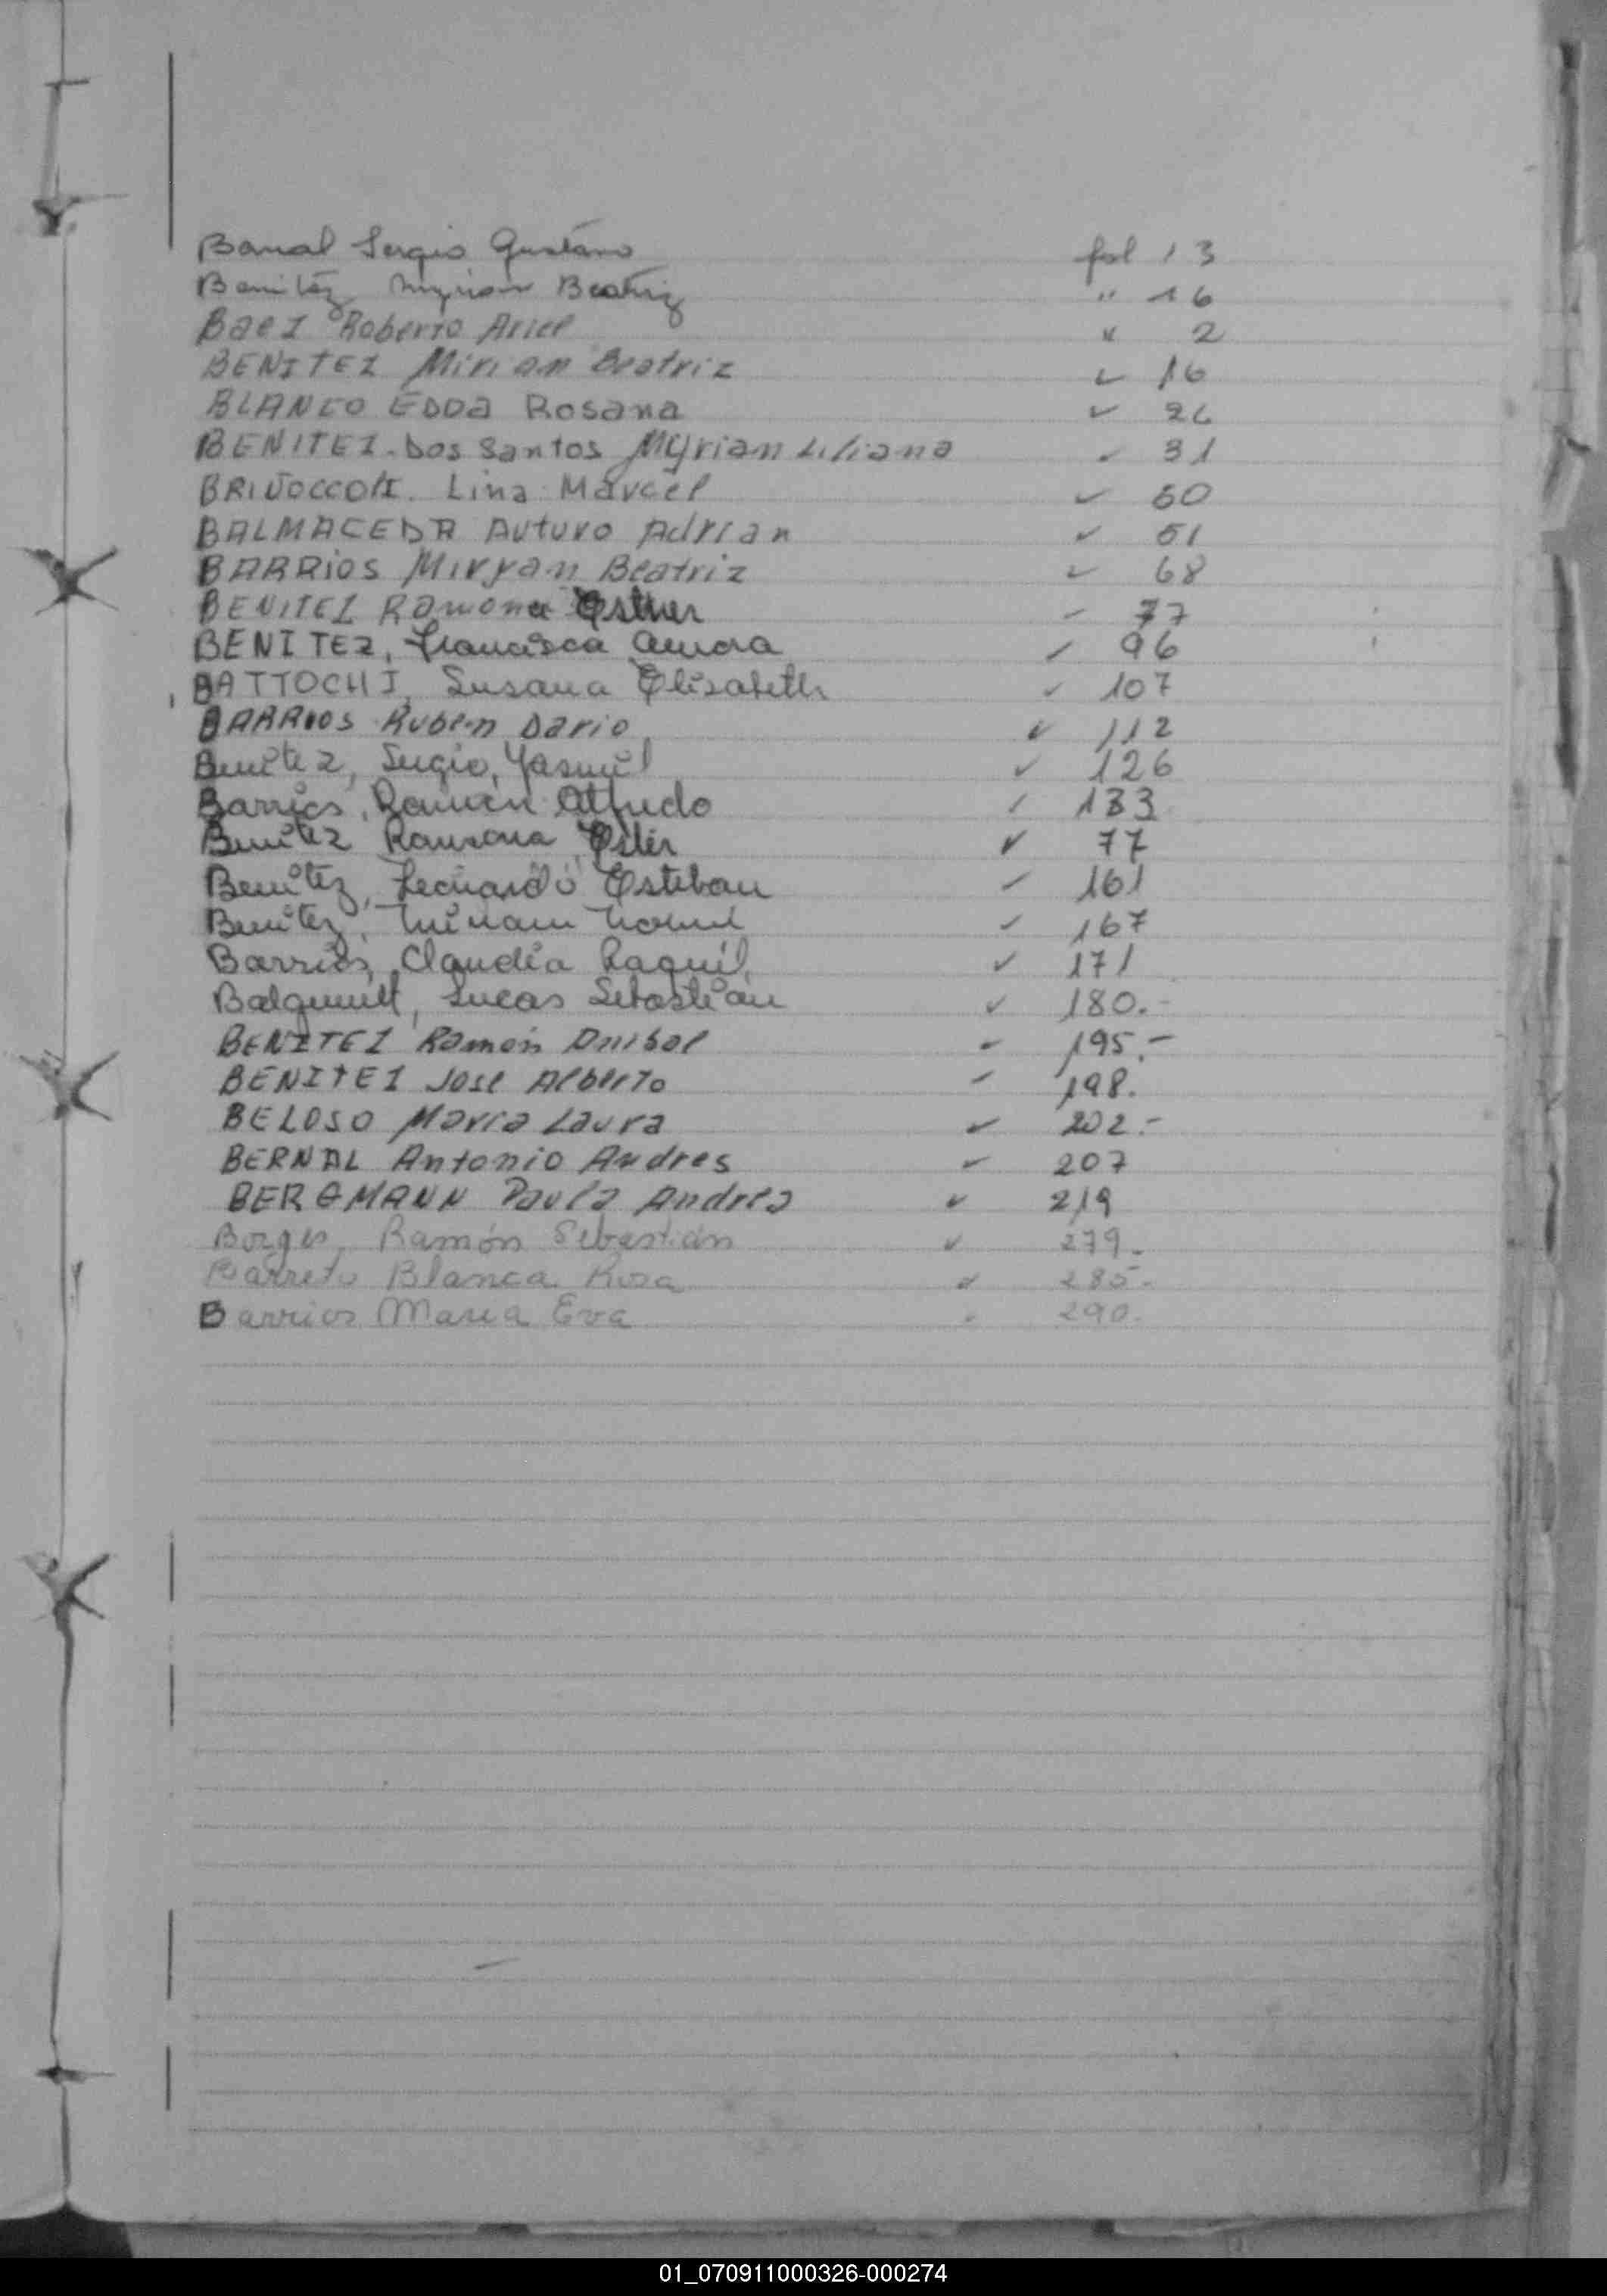 Banal Sergio Gustavo fol 13
Benitez Myrian Beatriz " 16
Baez Roberto Ariel " 2
BENITEZ Mirian Beatriz ✓ 16
BLANCO EDDA Rosana ✓ 26
BENITEZ. Dos Santos Myrian Liliana ✓ 31
Lina Marcel ✓ 50
BALMACEDA Arturo Adrian ✓ 51
BARRIOS Miryan Beatriz ✓ 68
BENITEZ Ramona Esther ✓ 77
BENITEZ, Francisca Aurora ✓ 96
BATTOCHI, Susana Elisabeth ✓ 107
BARRIOS Ruben Dario ✓ 112
Benitez, Sergio, Yasmil ✓ 126
Barrios, Ramón Alfredo ✓ 133
Benitez Ramona, Ester ✓ 77
Benitez, Leonardo Esteban ✓ 161
Benitez, Miriam ✓ 167
Barrios, Claudia Raquel, ✓ 171
Lucas Sebastián ✓ 180.-
BENITEZ Ramón Anibal ✓ 195.-
BENITEZ José Alberto ✓ 198.
BELOSO Maria Laura ✓ 202.-
BERNAL Antonio Andres ✓ 207
BERGMANN Paula Andrea ✓ 219
Borges, Ramón Sebastián ✓ 279.
Barreto Blanca Rosa ✓ 285.
Barrios Maria Eva 290.
01_070911000326-000274